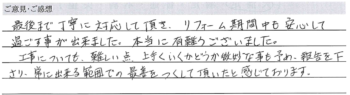 ご意見・ご感想
最後まで丁寧に対応して頂き、リフォーム期間中も安心して
過ごす事が出来ました。本当に有難うございました。
工事についても、難しい点、上手くいくかどうか微妙な事も予め、報告を下
さり、常に出来る範囲での最善をつくして頂いたと感じております。